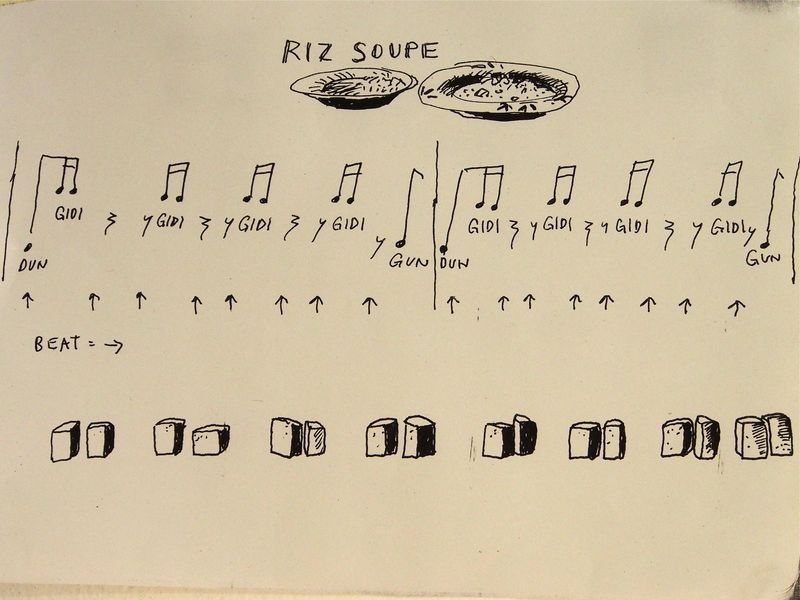 RIZ SOUPE
GIDI GIDI GIDI GIDI GIDI GIDI GIDI GIDI
DUN GUN DUN GUN
BEAT = →